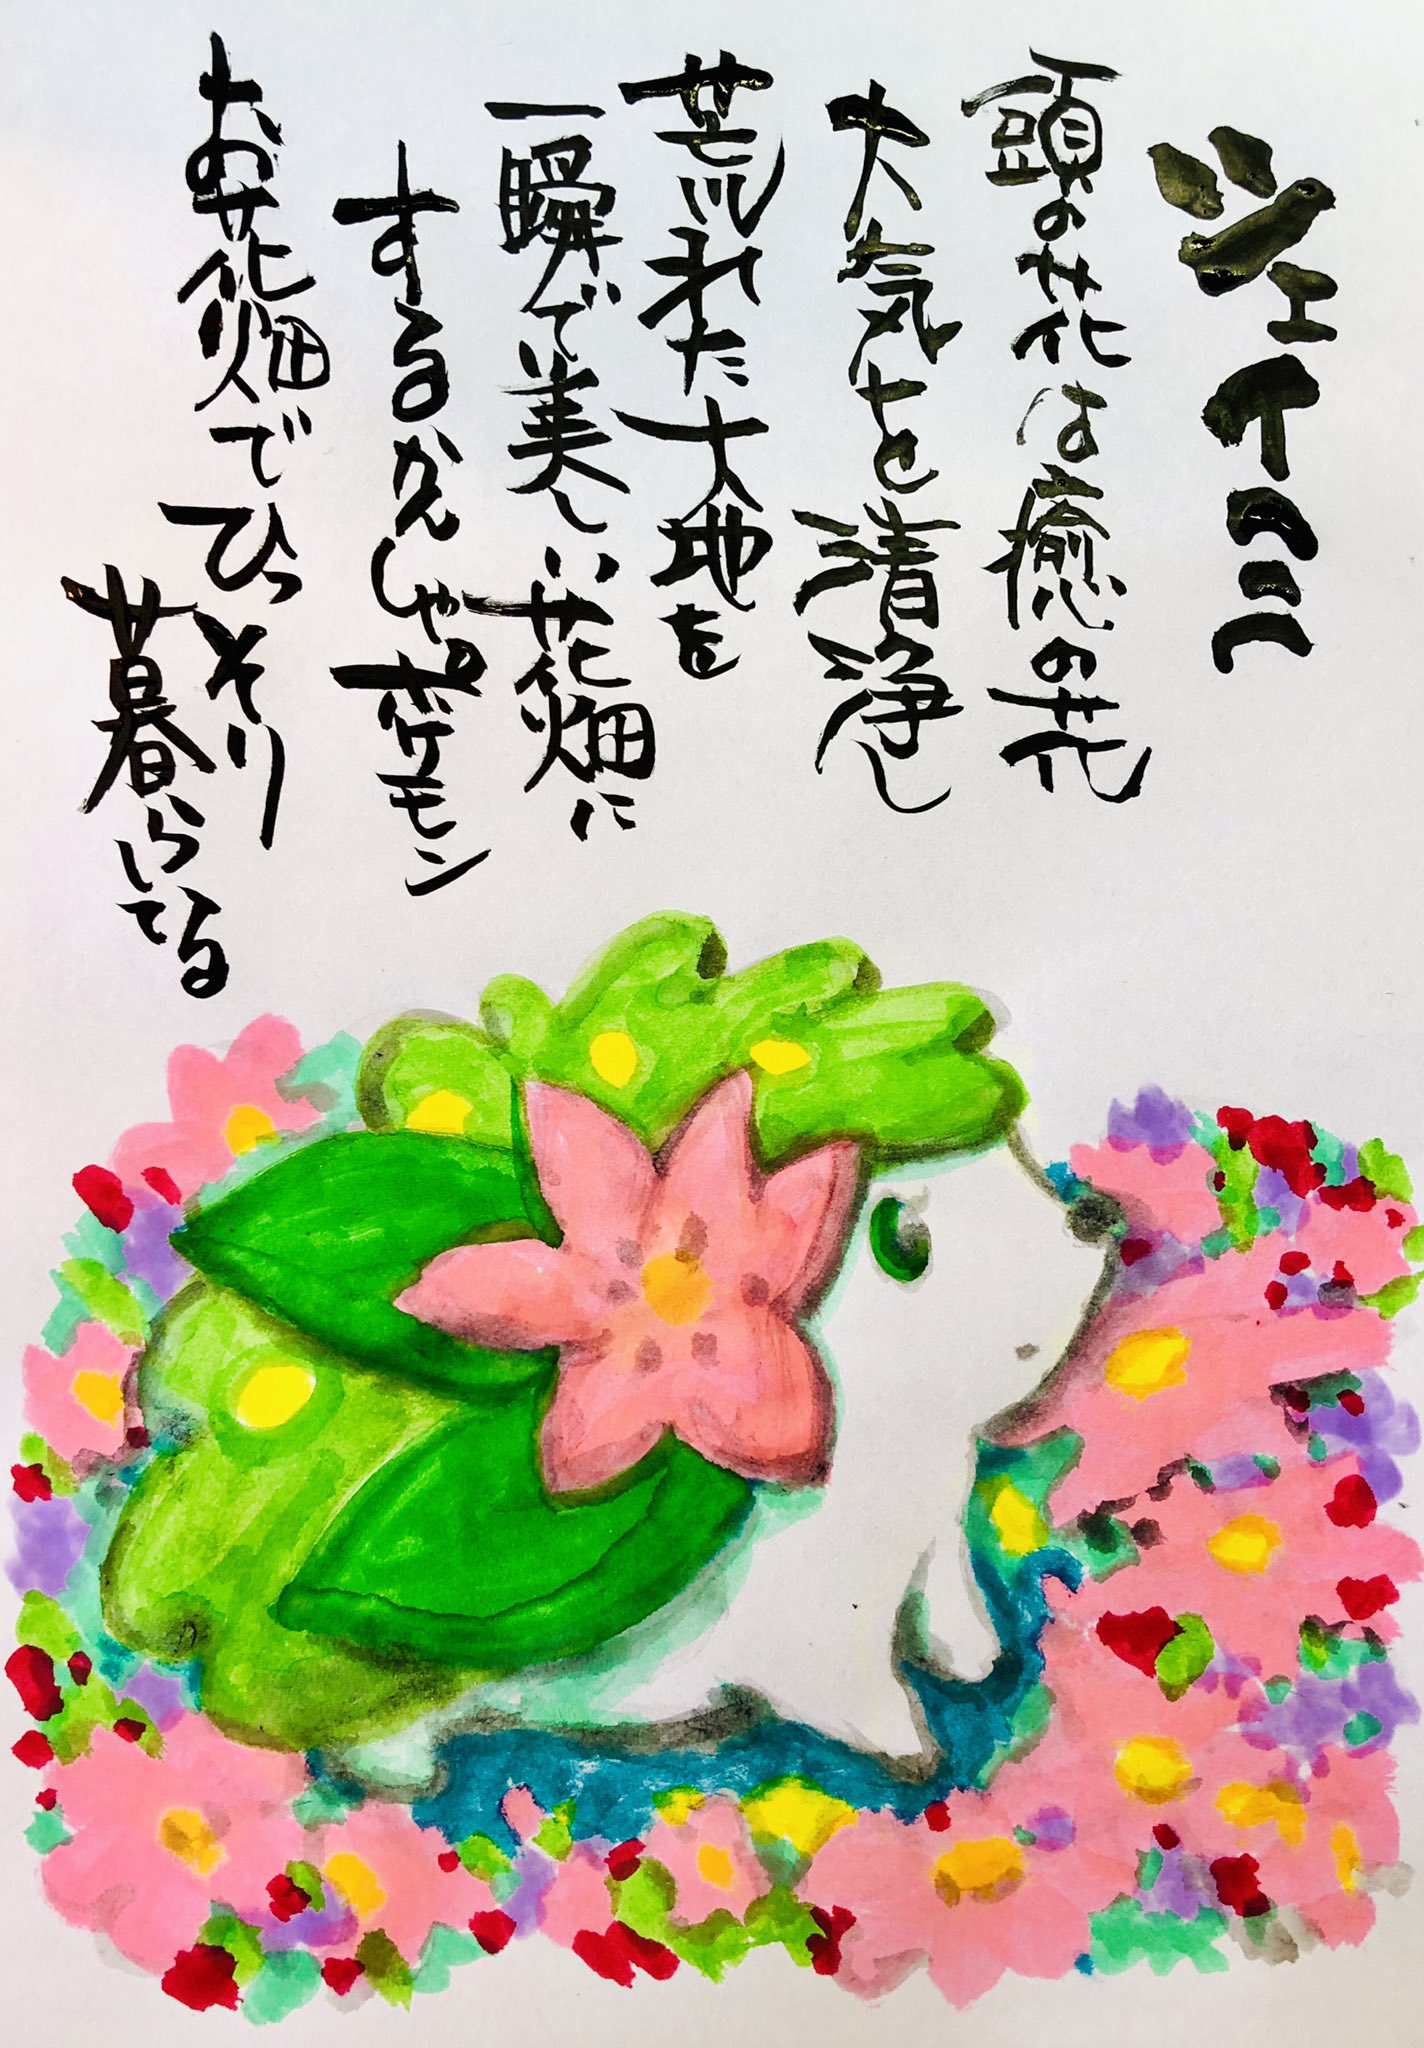 シェイミ
頭の花は癒の花
大気を清浄し
荒れた大地を
一瞬で美しい花畑に
するかんしゃポケモン
お花畑でひっそり
暮らしてる